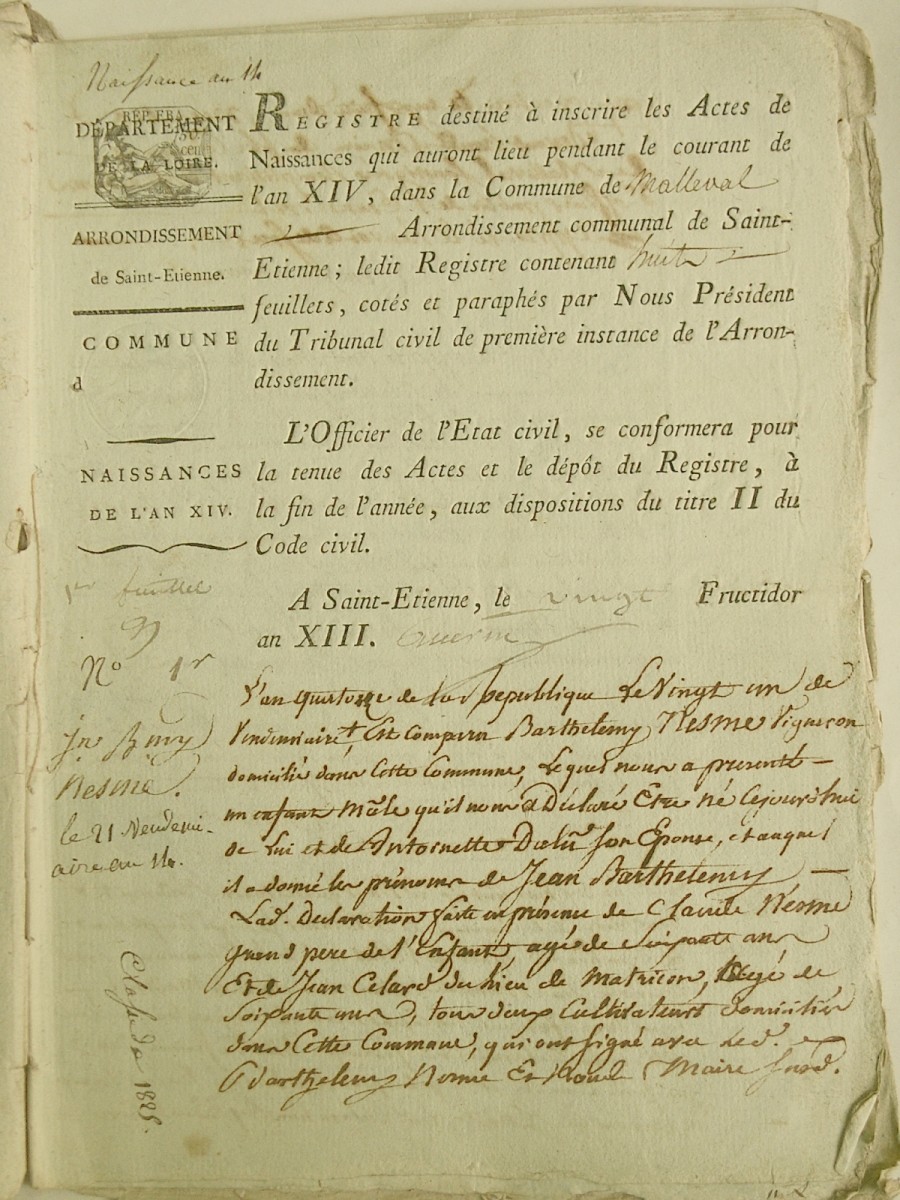 Naissance an 14
DÉPARTEMENT
DE LA LOIRE.
ARRONDISSEMENT
de Saint-Etienne.
COMMUNE
d
NAISSANCES
DE L'AN XIV.
REGISTRE destiné à inscrire les Actes de
Naissances qui auront lieu pendant le courant de
l'an XIV, dans la Commune de Malleval
Arrondissement communal de Saint-
Etienne ; ledit Registre contenant huit
feuillets, cotés et paraphés par Nous Président
du Tribunal civil de première instance de l'Arron-
dissement.
L'Officier de l'Etat civil, se conformera pour
la tenue des Actes et le dépôt du Registre, à
la fin de l'année, aux dispositions du titre II du
Code civil.
A Saint-Etienne, le vingt Fructidor
an XIII.
1er feuillet
No 1r
Jn Bmy
Nesme.
le 21 Vendemi-
aire an 14.
L'an quatorze de la Republique Le Vingt un de
Vendemiaire, Est comparu Barthelemy Nesme Vigneron
domicilié dans Cette Commune, Lequel nous a presenté
un enfant Mâle qu'il nous a Déclaré Etre né Cejourd'hui
de Lui et de Antoinette son Epouse, et auquel
il a donné les prénoms de Jean Barthelemy
Lad. Declaration faite en présence de Claude Nesme
grand pere de l'Enfant, agé de Soixante ans
Et de Jean Celard du lieu de Matricon, agé de
Soixante ans, tous deux Cultivateurs domiciliés
dans Cette Commune, qui ont signé avec Led.
Barthelemy Nesme Et Maire
1825.